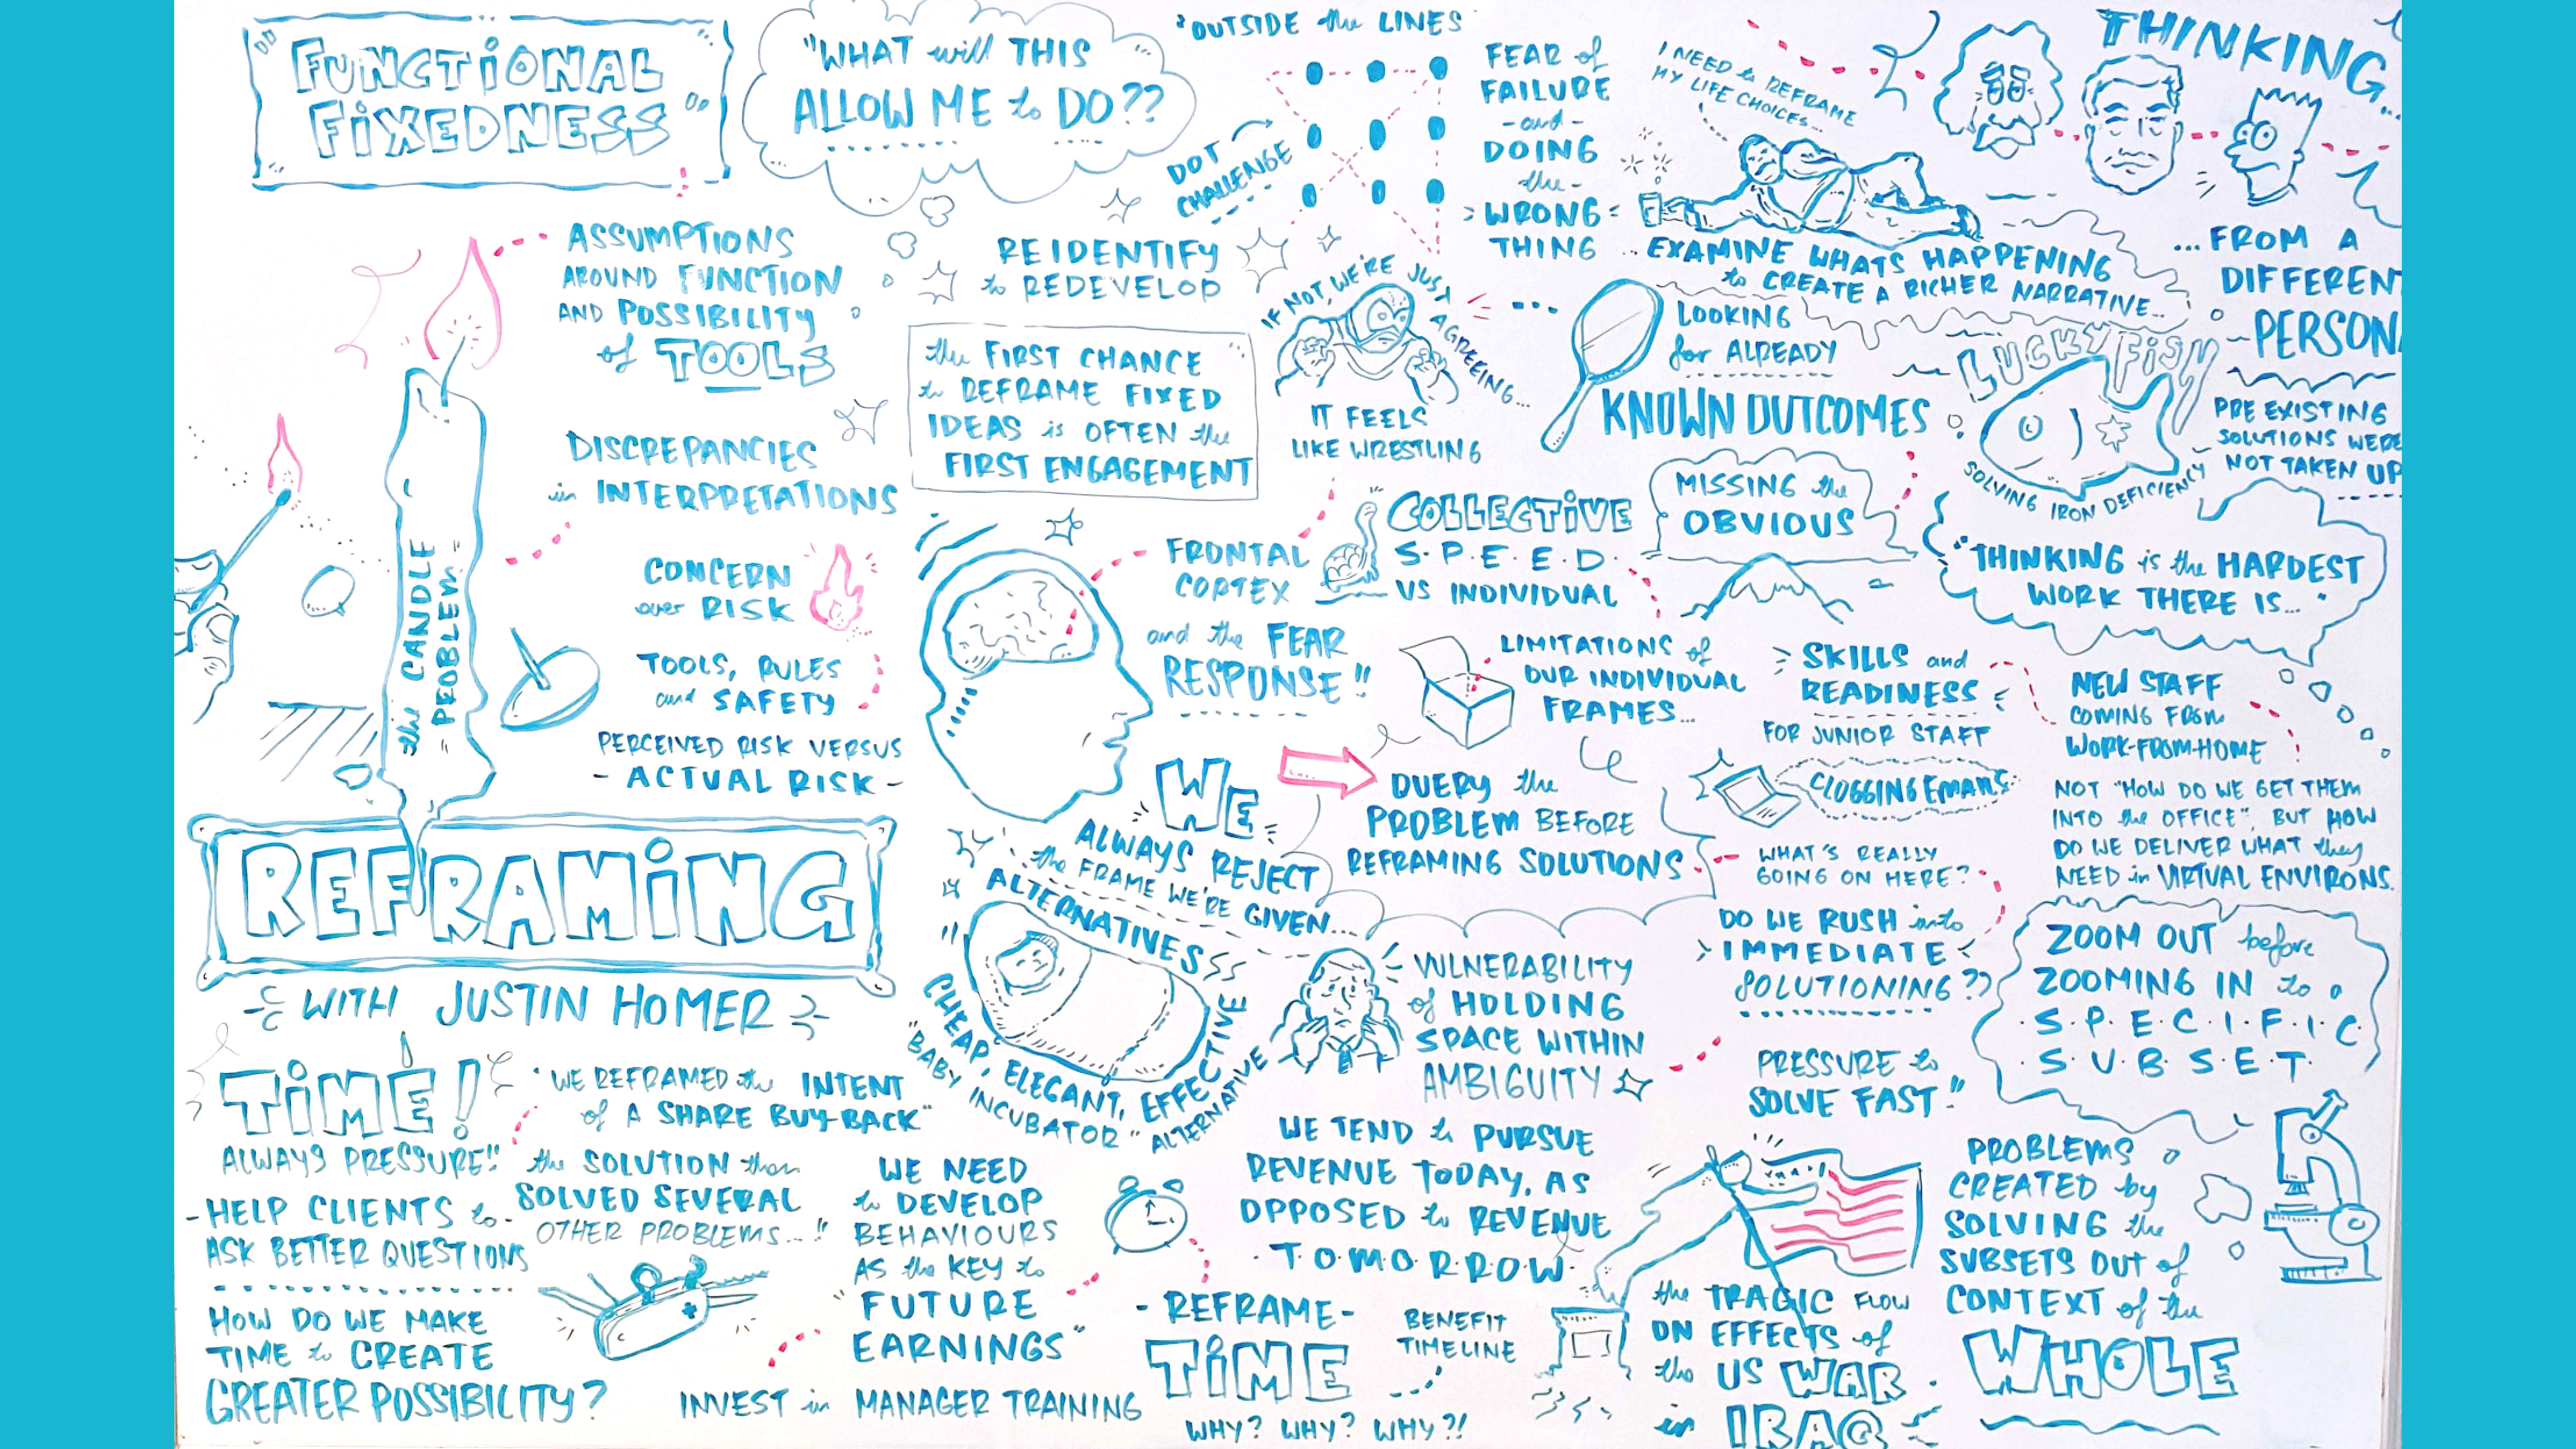 FUNCTIONAL
FIXEDNESS
"WHAT will THIS
ALLOW ME to DO??
OUTSIDE the LINES
DOT
CHALLENGE
FEAR of
FAILURE
- and -
DOING
the -
WRONG
THING
I NEED to REFRAME
MY LIFE CHOICES...
THINKING...
...FROM A
DIFFERENT
- PERSON
ASSUMPTIONS
AROUND FUNCTION
AND POSSIBILITY
of TOOLS
REIDENTIFY
to REDEVELOP
the FIRST CHANCE
to REFRAME FIXED
IDEAS is OFTEN the
FIRST ENGAGEMENT
IF NOT, WE'RE JUST AGREEING...
IT FEELS
LIKE WRESTLING
...EXAMINE WHATS HAPPENING
to CREATE A RICHER NARRATIVE...
LOOKING
for ALREADY
KNOWN OUTCOMES
LUCKY FISH
SOLVING IRON DEFICIENCY
PRE EXISTING
SOLUTIONS WERE
NOT TAKEN UP
DISCREPANCIES
in INTERPRETATIONS
CONCERN
over RISK
TOOLS, RULES
and SAFETY
PERCEIVED RISK VERSUS
- ACTUAL RISK -
the CANDLE
- PROBLEM -
FRONTAL
CORTEX
and the FEAR
RESPONSE!!
COLLECTIVE
S.P.E.E.D.
VS INDIVIDUAL
MISSING the
OBVIOUS
"THINKING is the HARDEST
WORK THERE IS..."
LIMITATIONS of
OUR INDIVIDUAL
FRAMES...
SKILLS and
READINESS
FOR JUNIOR STAFF
CLOGGING EMAILS
NEW STAFF
COMING FROM
WORK-FROM-HOME
NOT "HOW DO WE GET THEM
INTO the OFFICE", BUT HOW
DO WE DELIVER WHAT they
NEED in VIRTUAL ENVIRONS.
WE
ALWAYS REJECT
the FRAME WE'RE GIVEN...
QUERY the
PROBLEM BEFORE
REFRAMING SOLUTIONS
WHAT'S REALLY
GOING ON HERE?
DO WE RUSH into
IMMEDIATE
SOLUTIONING??
PRESSURE to
SOLVE FAST!!
ZOOM OUT before
ZOOMING IN to a
.S.P.E.C.I.F.I.C.
S.U.B.S.E.T.
REFRAMING
WITH JUSTIN HOMER
ALTERNATIVES
CHEAP, ELEGANT, EFFECTIVE
"BABY INCUBATOR" ALTERNATIVE
VULNERABILITY
of HOLDING
SPACE WITHIN
AMBIGUITY
TIME!
ALWAYS PRESSURE!!
- HELP CLIENTS to -
ASK BETTER QUESTIONS
HOW DO WE MAKE
TIME to CREATE
GREATER POSSIBILITY?
"WE REFRAMED the INTENT
of A SHARE BUY-BACK"
the SOLUTION then
SOLVED SEVERAL
OTHER PROBLEMS...!!
WE NEED
to DEVELOP
BEHAVIOURS
AS the KEY to
"FUTURE
EARNINGS"
INVEST in MANAGER TRAINING
WE TEND to PURSUE
REVENUE TODAY, AS
OPPOSED to REVENUE
.T.O.M.O.R.R.O.W.
- REFRAME -
TIME
WHY? WHY? WHY?!
BENEFIT
TIMELINE
the TRAGIC FLOW
ON EFFECTS of
the US WAR
in IRAQ
PROBLEMS
CREATED by
SOLVING the
SUBSETS OUT of
CONTEXT of the
WHOLE